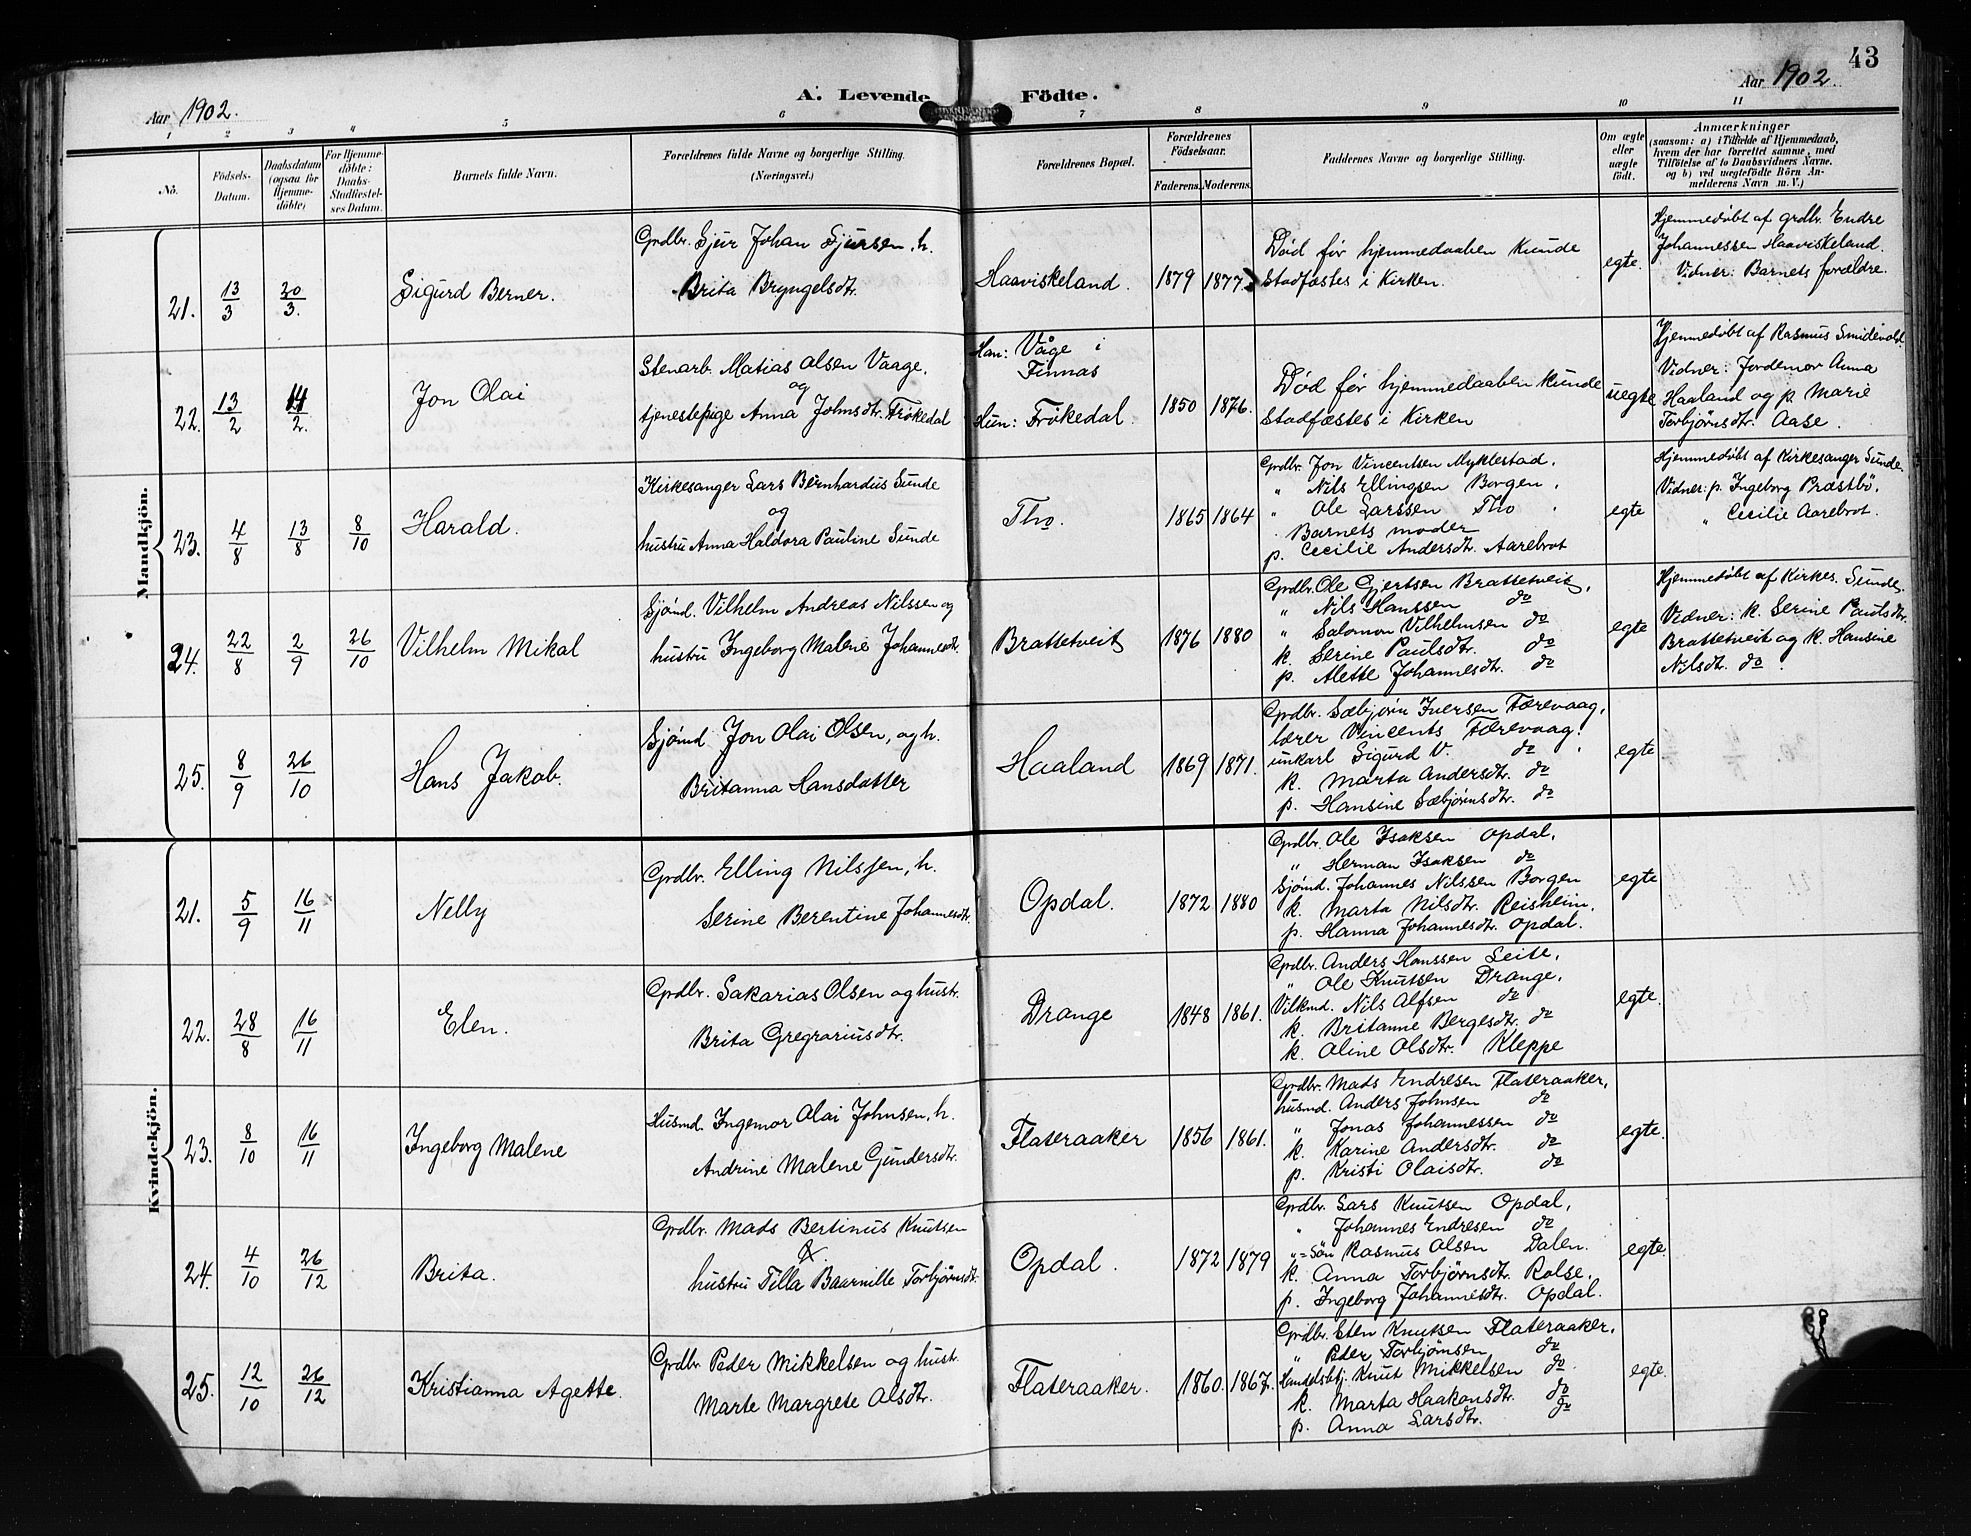 43
Aar 1902.
A. Levende Födte.
Aar 1902.
1 2 3 4 5 6 7 8 9 10 11
No.
Födsels-Datum.
Daabsdatum (ogsaa for Hjemme-döbte)
For Hjemme-döbte: Daabs-Stadfæstel-ses Datum.
Barnets fulde Navn.
Forældrenes fulde Navne og borgerlige Stilling. (Næringsvei.)
Forældrenes Bopæl.
Forældrenes Födselsaar.
Faderens. Moderens.
Faddernes Navne og borgerlige Stilling.
Om ægte eller uægte födt.
Anmærkninger
(saasom: a) i Tilfælde af Hjemmedaab,
hvem der har forrettet samme, med
Tilföielse af to Daabsvidners Navne,
og b) ved uægtefödte Börn An-
melderens Navn m. V.)
Mandkjön.
21. 13/3 20/3. Sigurd Berner.
Grdbr. Sjur Johan Sjursen, h.
Brita Bryngelsdtr.
Haaviskeland. 1879 1877
Död för hjemmedaaben kunde
stadfæstes i Kirken.
egte.
Hjemmedöbt af grdbr. Endre
Johannessen Haaviskeland.
Vidner: Barnets forældre.
22. 13/2 14/2. Jon Olai
Stenarb. Matias Olsen Vaage.
og
tjenestepige Anna Johnsdtr. Frökedal
Han: Våge i
Finnas
Hun: Frökedal. 1850 1876.
Död för hjemmedaaben kunde
stadfæstes i Kirken
uegte
Hjemmedöbt af Rasmus Smidevolt.
Vidner: Jordemor Anna
Haaland og p. Marie
Torbjörnsdtr. Aase.
23. 4/8 13/8 8/10 Harald.
Kirkesanger Lars Bernhardus Sunde
og
hustru Anna Haldora Pauline Sunde
Tho. 1865 1864
Grdbr. Jon Vincentsen Myklestad.
" Nils Ellingsen Borgen.
" Ole Larssen Tho.
Barnets moder
p. Cecilie Andersdtr. Aarebrot
egte
Hjemmedöbt af Kirkesanger Sunde.
Vidner: p. Ingeborg Præstbö.
" Cecilie Aarebrot.
24. 22/8 2/9 26/10 Vilhelm Mikal
Sjömd. Vilhelm Andreas Nilssen og
hustru Ingeborg Malene Johannesdtr.
Brattetveit 1876 1880
Grdbr. Ole Gjertsen Brattetveit,
" Nils Hanssen do
" Salomon Vilhelmsen do
k. Serine Paulsdtr. do
p. Alette Johannesdtr. do
egte
Hjemmedöbt af Kirkes. Sunde.
Vidner: k. Serine Paulsdtr.
Brattetveit og k Hansine
Nilsdtr. do.
25. 8/9 26/10 Hans Jakob.
Sjömd. Jon Olai Olsen, og h.
Britanna Hansdatter
Haaland 1869 1871.
Grdbr. Sæbjörn Iversen Færevaag,
lærer Vincents Færevaag.
unkarl Sigurd V. do
k. Marta Andersdtr. do
p. Hansine Sæbjörnsdtr. do
egte
Kvindekjön.
21. 5/9 16/11 Nelly
Grdbr. Elling Nilssen, h.
Serine Berentine Johannesdtr.
Opdal. 1872 1880
Grdbr. Ole Isaksen Opdal,
" Herman Isaksen do
Sjömd. Johannes Nilssen Borgen
k. Marta Nilsdtr. Reisheim.
p. Hanna Johannesdtr. Opdal.
egte
22. 28/8 16/11 Elen.
Grdbr. Sakarias Olsen og hustr.
Brita Gregrariusdtr.
Drange 1848 1861.
Grdbr. Anders Hanssen Leite,
" Ole Knutsen Drange,
Vilkmd. Nils Alfsen do
k. Britanne Bergesdtr. do
k. Oline Olsdtr. Kleppe
egte.
23. 8/10 16/11 Ingeborg Malene
Husmd. Ingemor Olai Johnsen, h.
Andrine Malene Gundersdtr.
Flateraaker 1856 1861.
Grdbr. Mads Endresen Flateraaker,
husmd. Anders Johnsen do
" Jonas Johannessen do
k. Karine Andersdtr. do
p. Kristi Olaisdtr. do
egte.
24. 4/10 26/12 Brita.
Grdbr. Mads Bertinus Knutsen
&
hustru Tilla Baarnille Torbjörnsdtr.
Opdal. 1872 1879
Grdbr. Lars Knutsen Opdal,
" Johannes Endresen do
"=Sön Rasmus Olsen Dalen.
k. Anna Torbjörnsdtr. Rolse,
p. Ingeborg Johannesdtr. Opdal.
egte.
25. 12/10 26/12 Kristianna Agette.
Grdbr. Peder Mikkelsen og hustr.
Marte Margrete Olsdtr.
Flateraaker. 1860. 1867.
Grdbr. Sten Knutsen Flateraaker,
" Peder Torbjörnsen do
Handelsbtj. Knut Mikkelsen do.
k. Marta Haakonsdtr. do
p. Anna Larsdtr. do
egte.